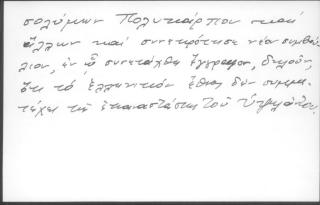 σολύμων Πολυκάρπου καὶ
ἄλλων καὶ συνεκρότησε νέον συμβού-
λιον, ἐν ᾧ συνετάχθη ἔγγραφον, δηλοῦν,
ὅτι τὸ ἑλληνικὸν ἔθνος δὲν συμμε-
τέχει τῆς ἐπαναστάσεως τοῦ Ὑψηλάντου.